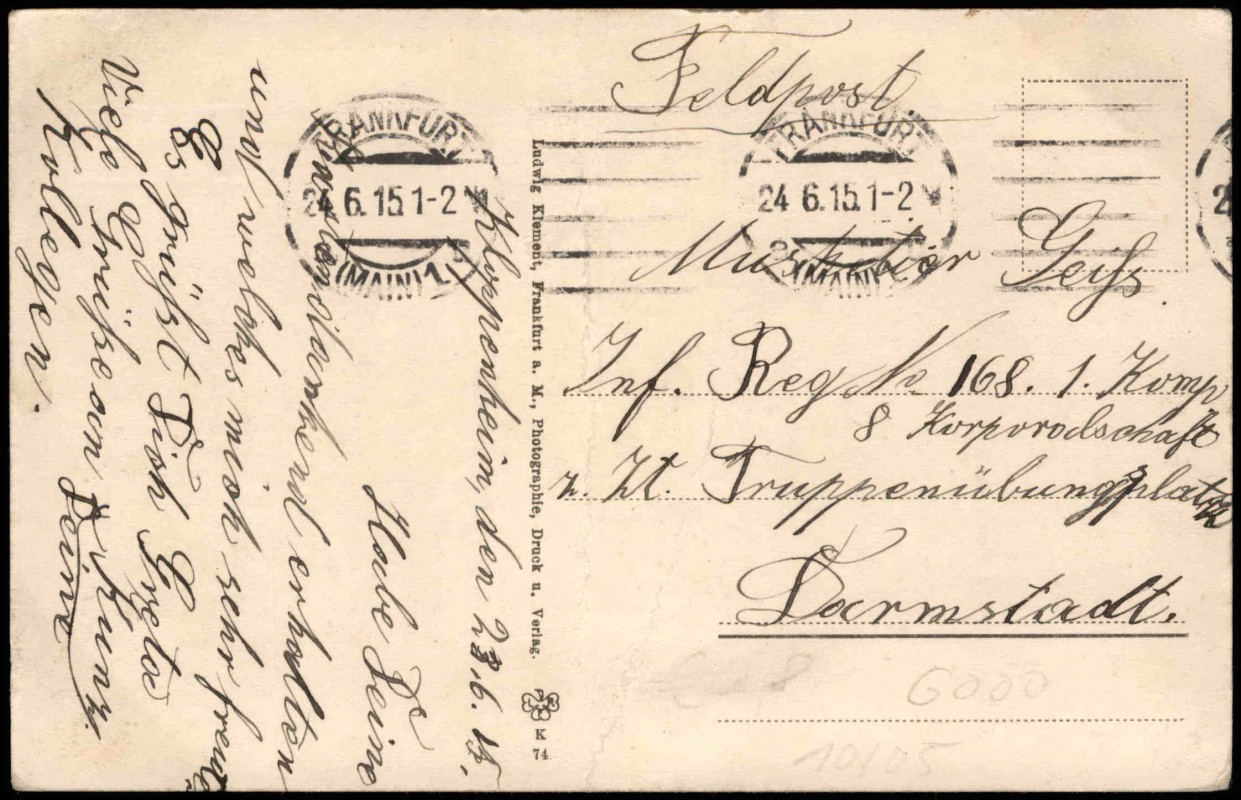 Kloppenheim, den 23.6.15.
Habe Deine
Karte dankend erhalten
und welches mich sehr freute
Es grüßt Dich Greta
Viele Grüße an Kunz.
Kollegen.
Deine
Ludwig Klement, Frankfurt a. M., Photographie, Druck u. Verlag.
K
74
Feldpost
FRANKFURT
24.6.15.1-2 N
(MAIN) 1
FRANKFURT
24.6.15.1-2 N
(MAIN) 1
2
Musketier Geiß
Inf. Reg No 168. 1. Komp
8 Korporodschaft
z. Zt. Truppenübungsplatz
Darmstadt.
6000
10/05